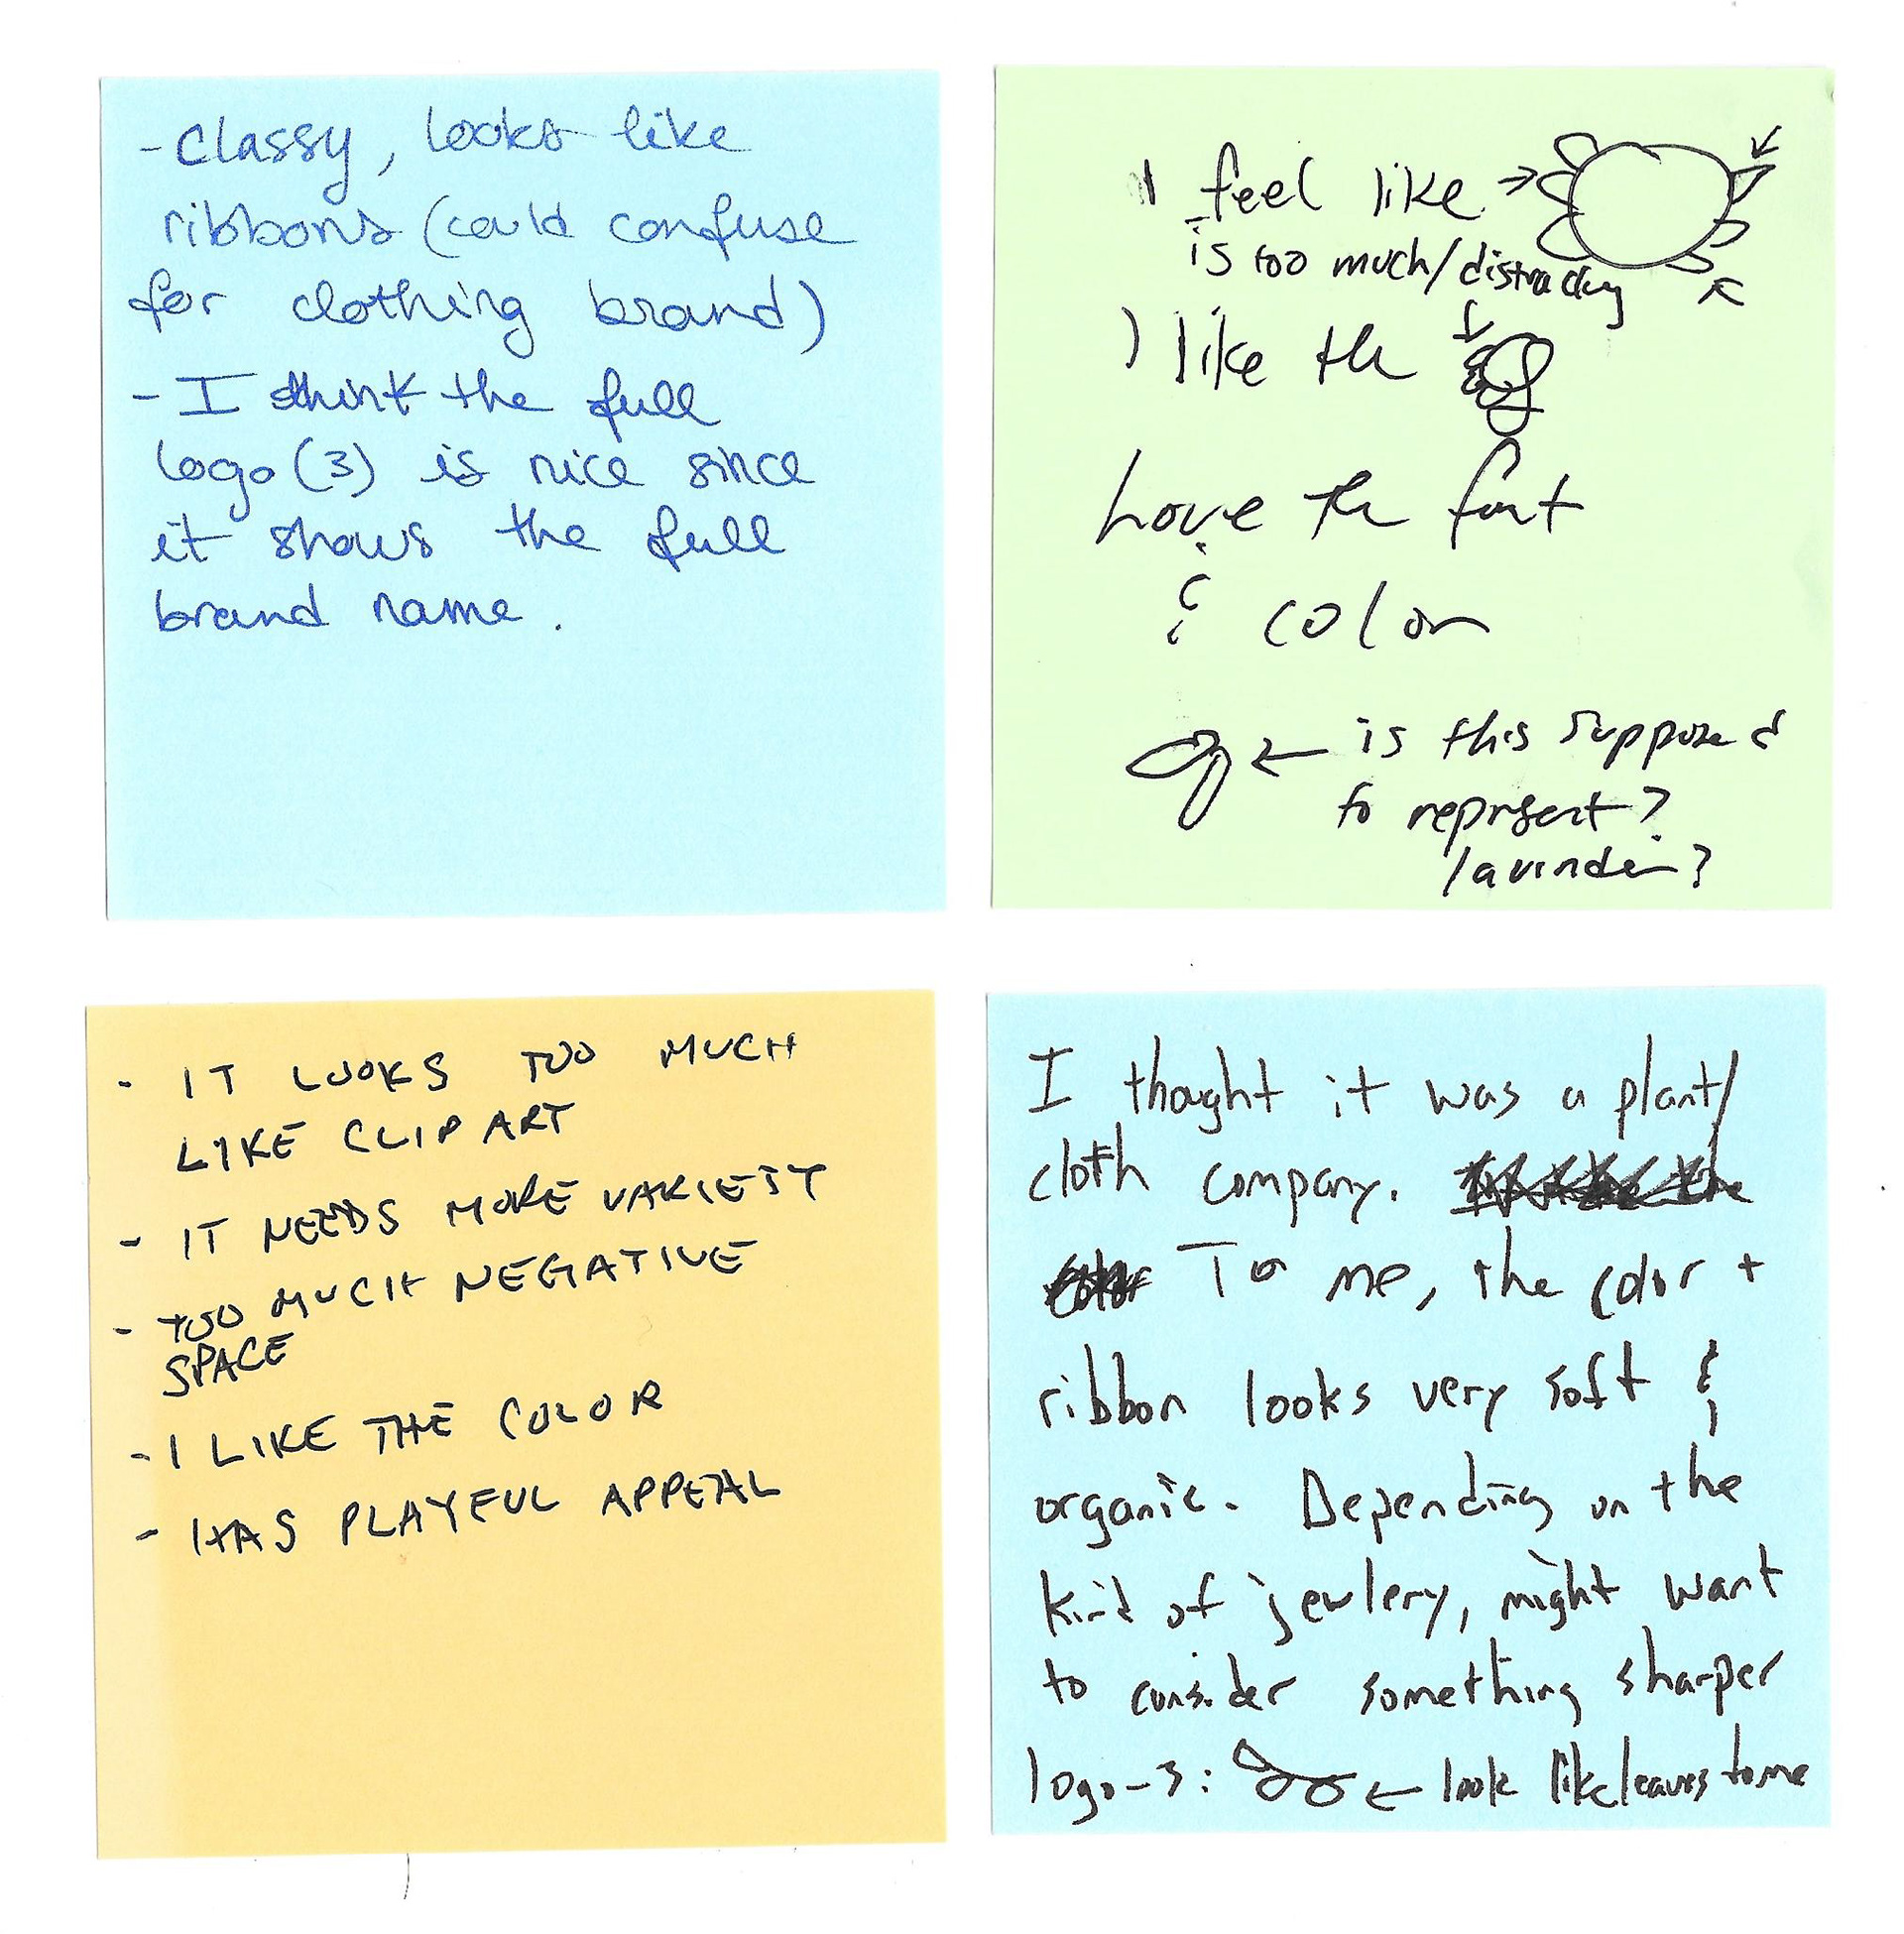 - Classy, looks like
ribbons (could confuse
for clothing brand)
- I think the full
logo (3) is nice since
it shows the full
brand name.
I feel like →
is too much/distracting
I like the
Love the font
& color
← is this supposed
to represent?
lavinder?
- IT LOOKS TOO MUCH
LIKE CLIP ART
- IT NEEDS MORE VARIETY
- TOO MUCH NEGATIVE
SPACE
- I LIKE THE COLOR
- HAS PLAYFUL APPEAL
I thought it was a plant/
cloth company.
To me, the color +
ribbon looks very soft &
organic. Depending on the
kind of jewlery, might want
to consider something sharper
logo-3: ← look like leaves to me